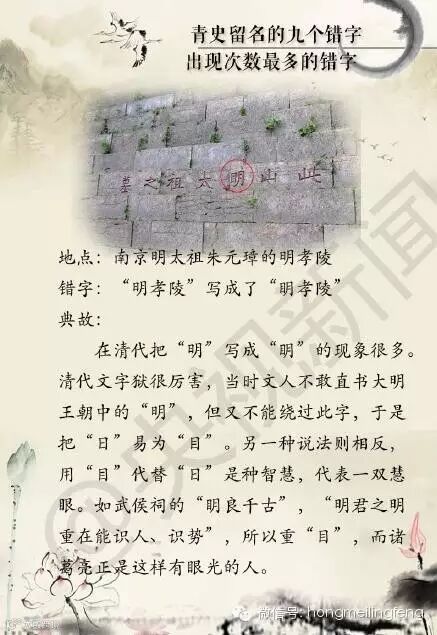 青史留名的九个错字
出现次数最多的错字
此山眀太祖之墓
地点：南京明太祖朱元璋的明孝陵
错字：“明孝陵”写成了“眀孝陵”
典故：
在清代把“明”写成“眀”的现象很多。
清代文字狱很厉害，当时文人不敢直书大明
王朝中的“明”，但又不能绕过此字，于是
把“日”易为“目”。另一种说法则相反，
用“目”代替“日”是种智慧，代表一双慧
眼。如武侯祠的“眀良千古”，“明君之明
重在能识人、识势”，所以重“目”，而诸
葛亮正是这样有眼光的人。
@央视新闻
微信号: hongmeilingfeng